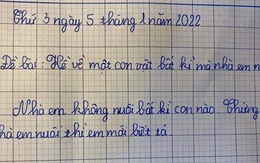 Thứ 3 ngày 5 tháng 1 năm 2022
Đề bài: Kể về một con vật bất kì mà nhà em n
Nhà em không nuôi bất kì con nào Chừng
hà em nuôi thì em mới biết tả.